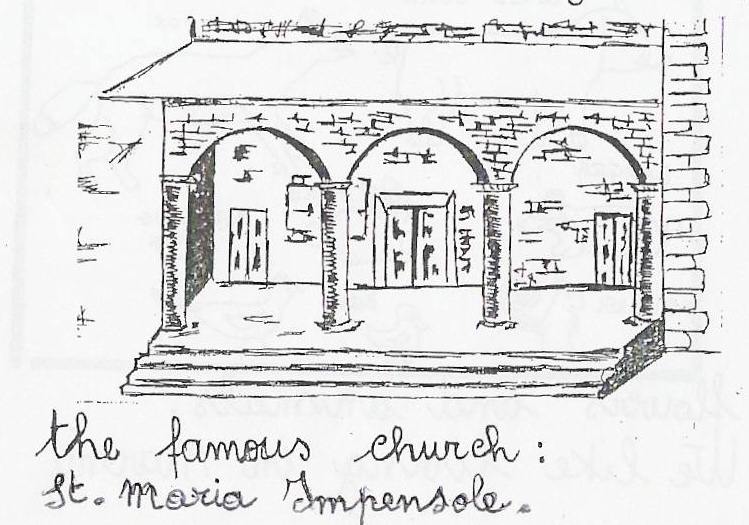 the famous church:
St. Maria Impensole.